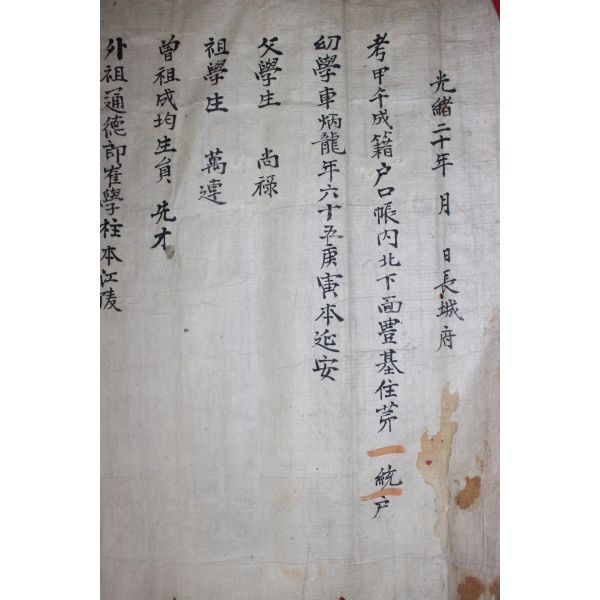 光緖二十年 月 日長城府
考甲午成籍戶口帳內北下面豊基住苐一統一戶
幼學車炳龍年六十五庚寅本延安
父學生 尙祿
祖學生 萬運
曾祖成均生員 先才
外祖通德郞崔學柱本江陵